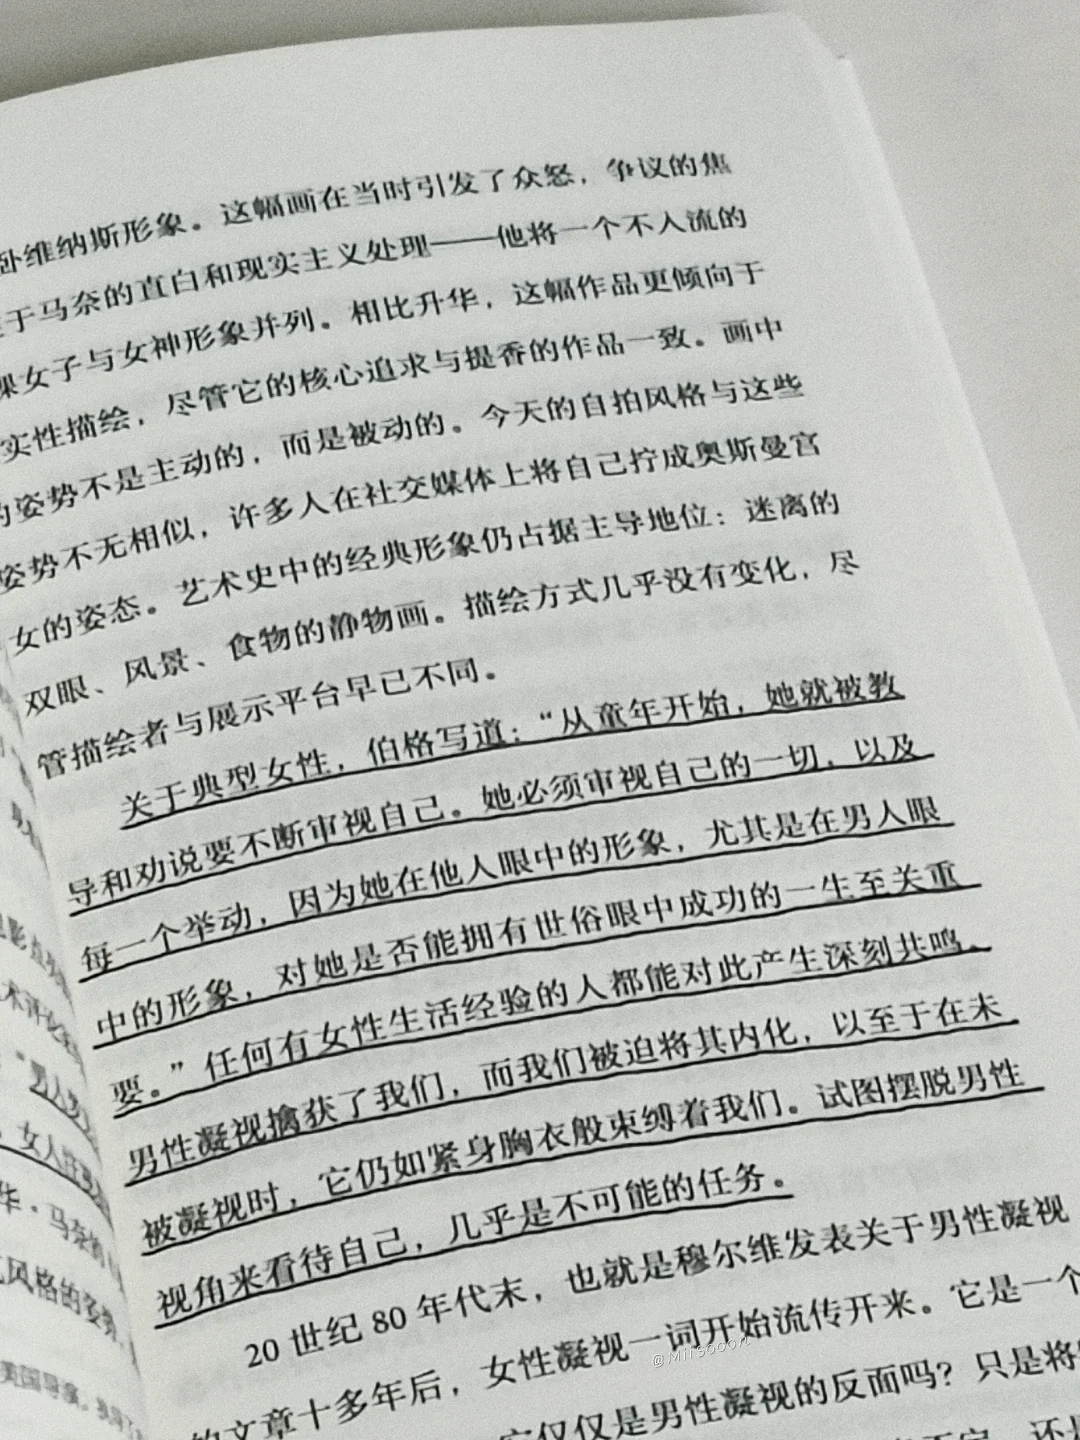 卧维纳斯形象。这幅画在当时引发了众怒，争议的焦
于马奈的直白和现实主义处理——他将一个不入流的
裸女子与女神形象并列。相比升华，这幅作品更倾向于
实性描绘，尽管它的核心追求与提香的作品一致。画中
的姿势不是主动的，而是被动的。今天的自拍风格与这些
姿势不无相似，许多人在社交媒体上将自己拧成奥斯曼宫
女的姿态。艺术史中的经典形象仍占据主导地位：迷离的
双眼、风景、食物的静物画。描绘方式几乎没有变化，尽
管描绘者与展示平台早已不同。
关于典型女性，伯格写道：“从童年开始，她就被教
导和劝说要不断审视自己。她必须审视自己的一切，以及
每一个举动，因为她在他人眼中的形象，尤其是在男人眼
中的形象，对她是否能拥有世俗眼中成功的一生至关重
要。”任何有女性生活经验的人都能对此产生深刻共鸣。
男性凝视擒获了我们，而我们被迫将其内化，以至于在未
被凝视时，它仍如紧身胸衣般束缚着我们。试图摆脱男性
视角来看待自己，几乎是不可能的任务。
20 世纪 80 年代末，也就是穆尔维发表关于男性凝视
的文章十多年后，女性凝视一词开始流传开来。它是一个
它仅仅是男性凝视的反面吗？只是将
还
术评论
“男人
女人注
华·马奈的
风格的姿势，
美国导演。
@Mirsooon